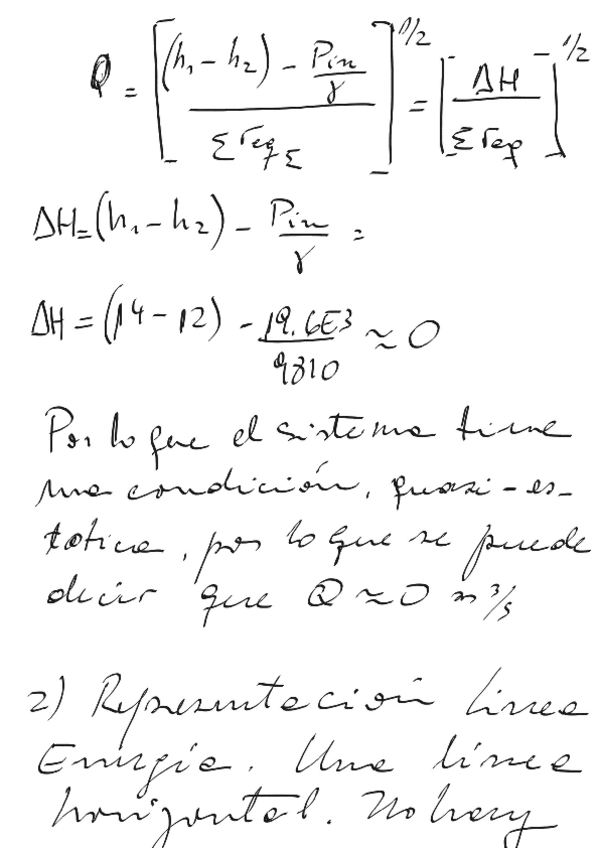 Q = [ (h₁ - h₂) - Pin/γ / Σ req Σ ]^1/2 = [ ΔH / Σ req ]^1/2
ΔH = (h₁ - h₂) - Pin/γ =
ΔH = (14 - 12) - 19.6E3/9810 ≈ 0
Por lo que el sistema tiene
una condición, quasi-es-
tática, por lo que se puede
decir que Q ≈ 0 m³/s
2) Representación línea
Energía. Una línea
horizontal. No hay